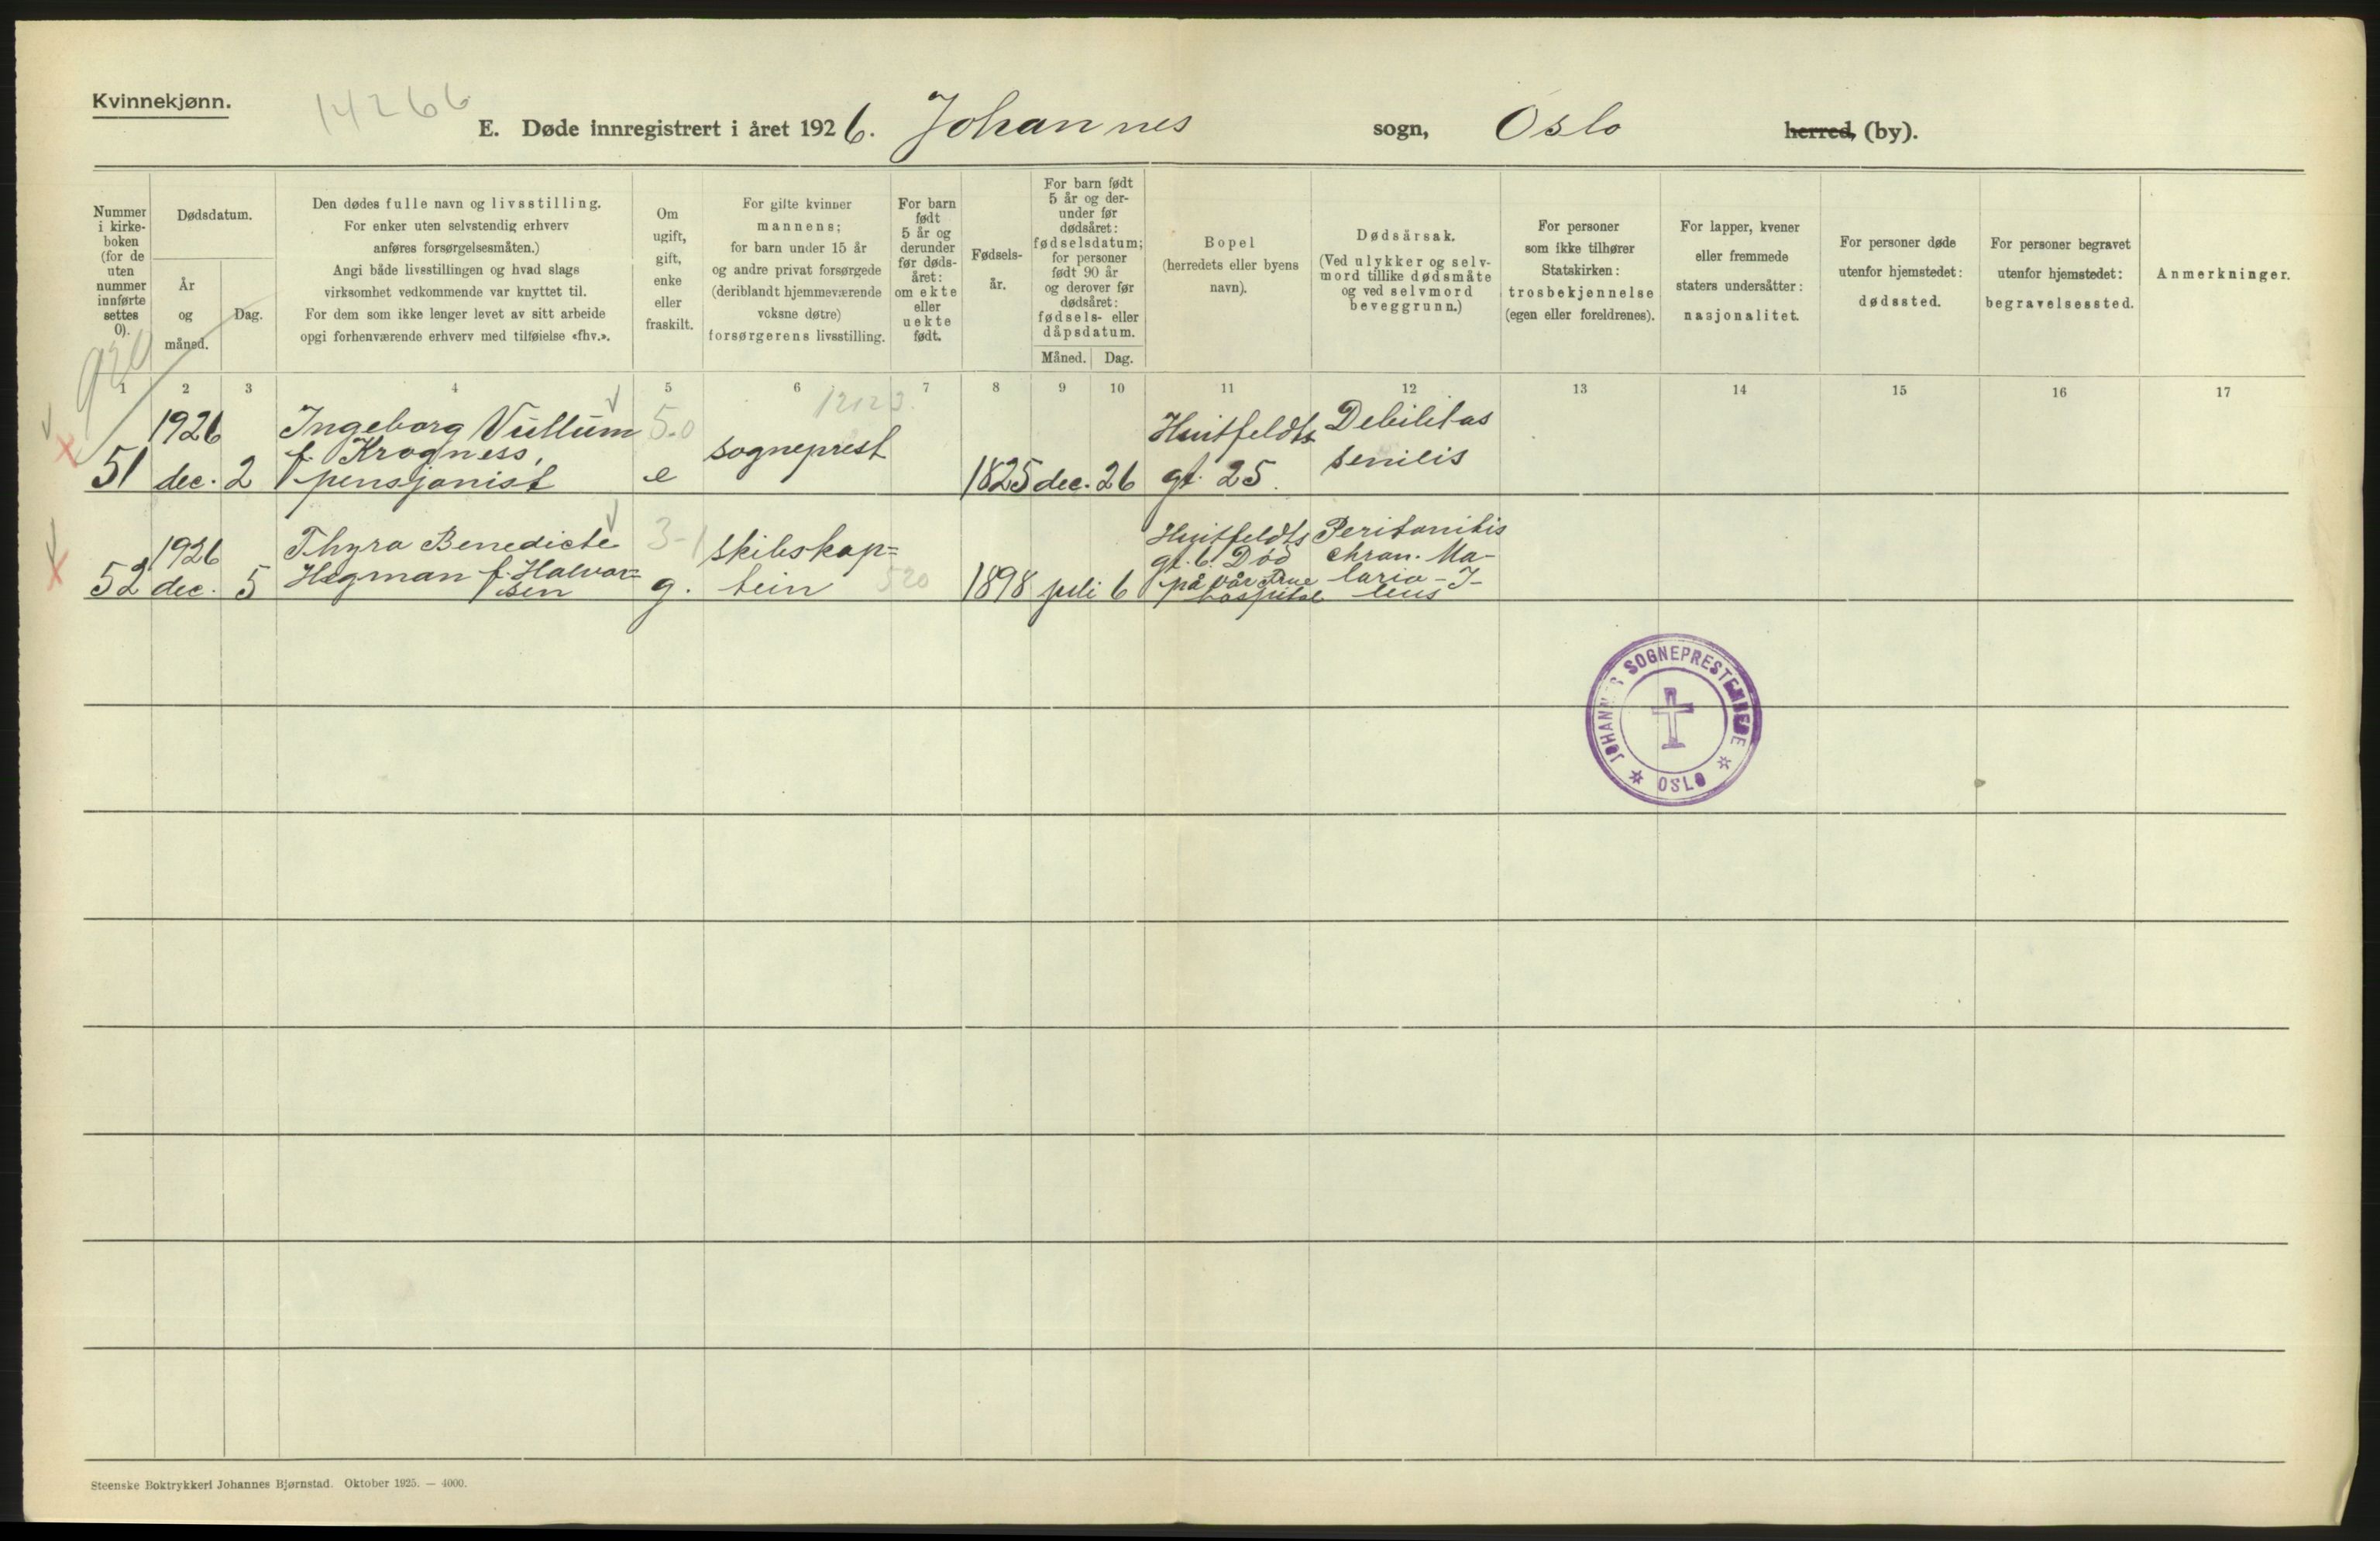 Kvinnekjønn.
14266
E. Døde innregistrert i året 1926. Johannes sogn, Oslo herred, (by).
Nummer
i kirke-
boken
(for de
uten
nummer
innførte
settes
0).
Dødsdatum.
År
og
måned.
Dag.
Den dødes fulle navn og livsstilling.
For enker uten selvstendig erhverv
anføres forsørgelsesmåten.)
Angi både livsstillingen og hvad slags
virksomhet vedkommende var knyttet til.
For dem som ikke lenger levet av sitt arbeide
opgi forhenværende erhverv med tilføielse «fhv.».
Om
ugift,
gift,
enke
eller
fraskilt.
For gifte kvinner
mannens;
for barn under 15 år
og andre privat forsørgede
(deriblandt hjemmeværende
voksne døtre)
forsørgerens livsstilling.
For barn
født
5 år og
derunder
før døds-
året:
om ekte
eller
uekte
født.
Fødsels-
år.
For barn født
5 år og der-
under før
dødsåret:
fødselsdatum;
for personer
født 90 år
og derover før
dødsåret:
fødsels- eller
dåpsdatum.
Måned. Dag.
Bopel
(herredets eller byens
navn).
Dødsårsak.
(Ved ulykker og selv-
mord tillike dødsmåte
og ved selvmord
beveggrunn.)
For personer
som ikke tilhører
Statskirken:
trosbekjennelse
(egen eller foreldrenes).
For lapper, kvener
eller fremmede
staters undersåtter:
nasjonalitet.
For personer døde
utenfor hjemstedet:
dødssted.
For personer begravet
utenfor hjemstedet:
begravelsessted.
Anmerkninger.
1 2 3 4 5 6 7 8 9 10 11 12 13 14 15 16 17
51
1926
dec. 2
Ingeborg Vullum
f. Krogness,
pensjonist
5.0
e
sogneprest
1825 dec. 26
Huitfeldts
gt. 25.
Debilitas
senilis
52
1926
dec. 5
Thyra Benedicte
Hegman f. Halvor=
sen
3-1
g.
skibskap=
tein
520
1898 juli 6
Huitfeldts
gt. 6. Død
på Vår Frue
hospital
Peritonitis
chron. Ma-
laria - I-
leus
JOHANNES SOGNEPRESTEMBEDE
OSLO
Steenske Boktrykkeri Johannes Bjørnstad. Oktober 1925. — 4000.